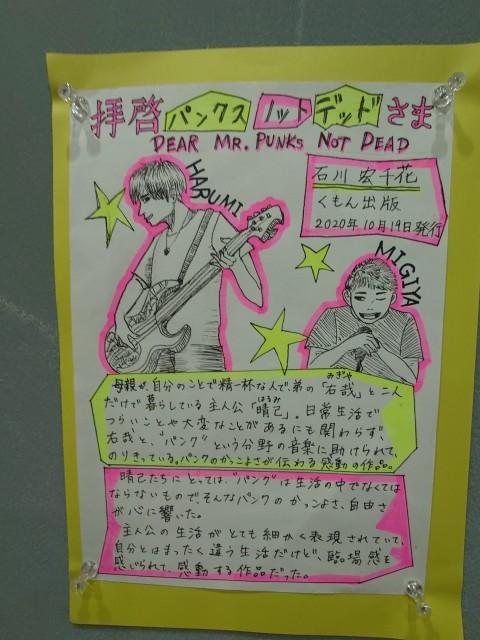 拝啓パンクスノットデッドさま
DEAR MR. PUNKS NOT DEAD
HARUMI
石川 宏千花
くもん出版
2020年10月19日発行
MIGIYA
母親が、自分のことで精一杯な人で弟の「右哉」と二人
みぎや
だけで暮らしている主人公「晴己」。日常生活で
はるみ
つらいことや大変なことがあるにも関わらず、
右哉と、"パンク"という分野の音楽に助けられて、
のりきっている。パンクのかっこよさが伝わる感動の作品。
晴己たちにとっては"パンク"は生活の中でなくては
ならないもので、そんなパンクのかっこよさ、自由さ
が心に響いた。
主人公の生活がとても細かく表現されていて、
自分とはまったく違う生活だけど、臨場感を
感じられて、感動する作品だった。